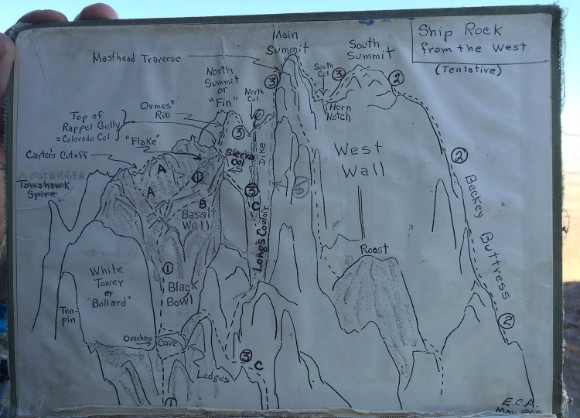 Ship Rock
from the West
(Tentative)
Main
Summit
South
Summit
Masthead Traverse
North
Summit
or
"Fin"
South
Col
3
3
2
North
Col
Horn
Notch
Ormes'
Rib
Top of
Rappel Gully
= Colorado Col
"Flake"
3
Carter's Cutoff
Sierra
Dike
West
Wall
2
A
A
1
B
Tomahawk
Spire
Basalt
Wall
3
C
5
Beckey
Buttress
Long's Couloir
Roost
White
Tower
or
"Bollard"
1
Black
Bowl
Ten-
pin
Overhang
Cave
Ledges
3
C
2
E.C.A.